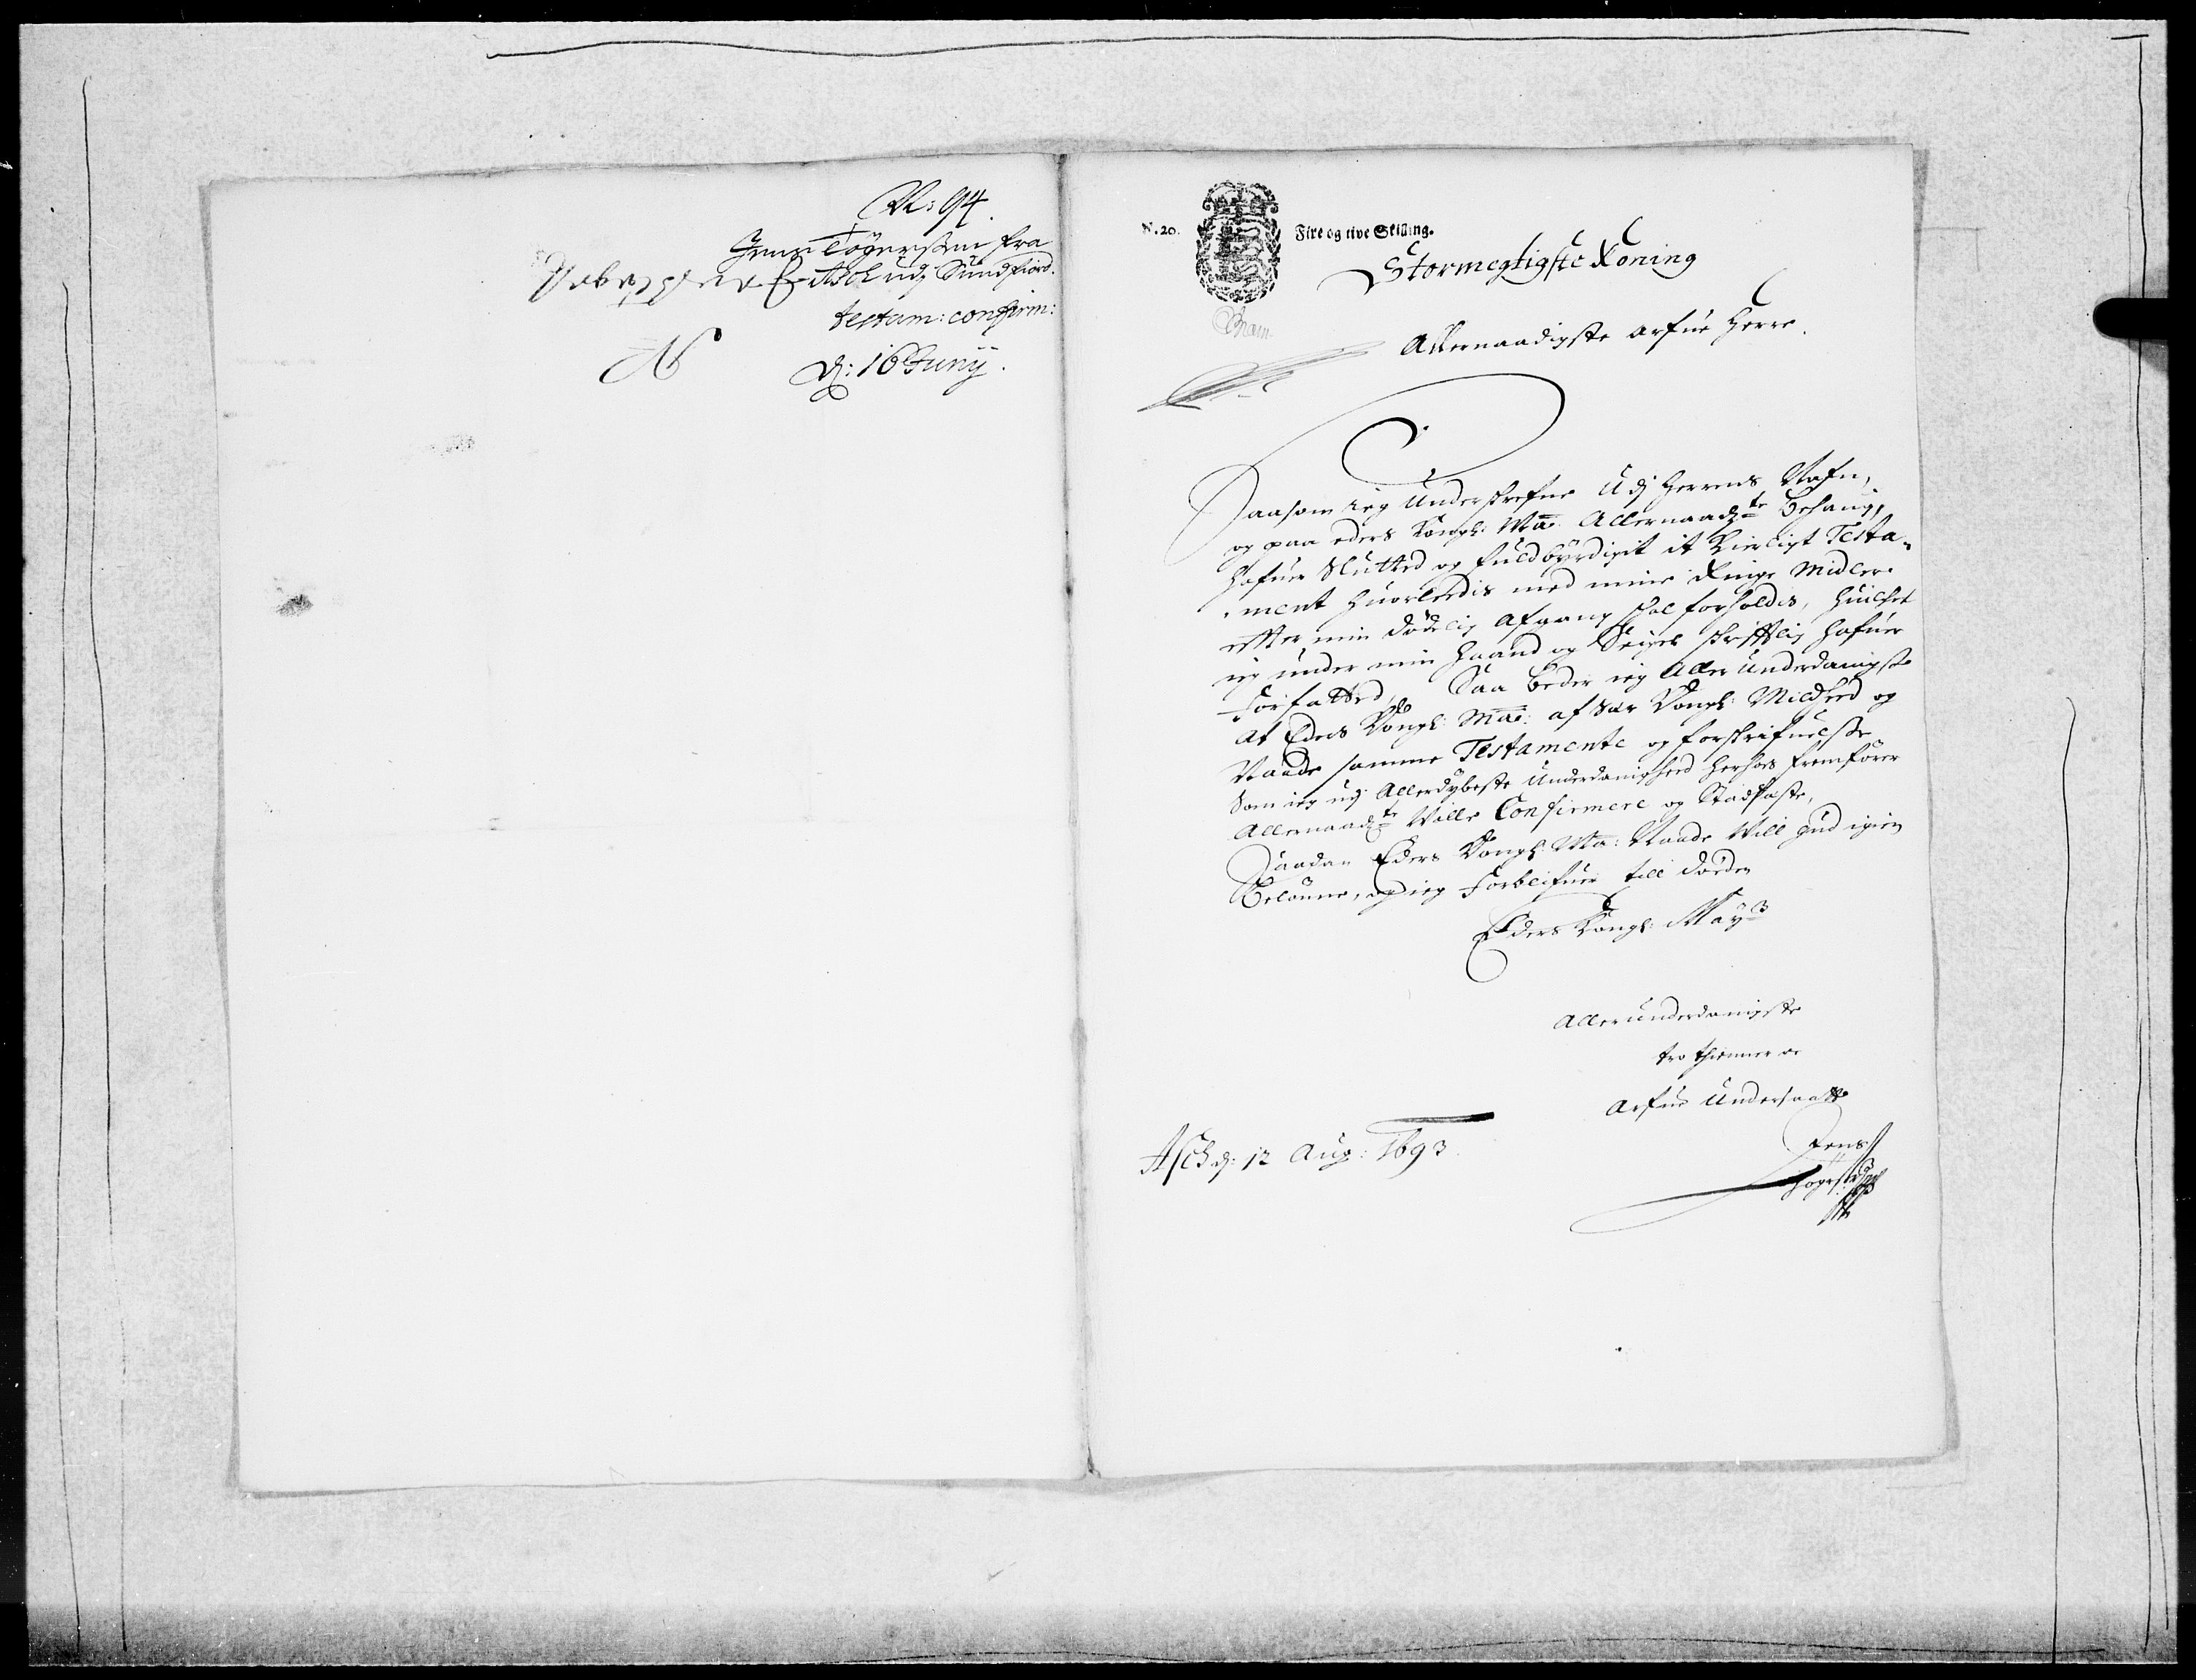 No: 94.
Jens Tøgersøn fra
Asch udj Sundfiord.
testam: confirm:
d: 16 Junij.
N.20.
Fire og tive Skilling.
Stormegtigste Koning
Allernaadigste Arfue Herre.
Saasom ieg Underskrefne Udj Herrens Nafn,
og paa eders Kongl: Ma: Allernaadste behaug,
hafuer Slutted og fuldbyrdigit it Kierligt Testa-
ment huorledis med mine Ringe Midler
effter min dødelig Afgang skal forholdis, huilchet
ieg under min Haand og Seigel skrifftlig hafuer
Forfatted, Saa beder ieg Aller Underdanigste
At Eders Kongl: Ma: af Sær Kongl: Mildhed og
Naade samme Testamente og forskrifuelse
Som ieg udj Allerdybeste Underdanighed herhos fremfører
Allernaadste Ville Confirmere og Stadfæste,
Saadan Eders Kongl: Ma: Naade Will Gud igien
Belønne, og ieg Forblifuer till døden
Eders Kongl: May:
Allerunderdanigste
tro thienner oc
Arfue Undersaatt
Jens
Asch d: 12 Aug: 1693.